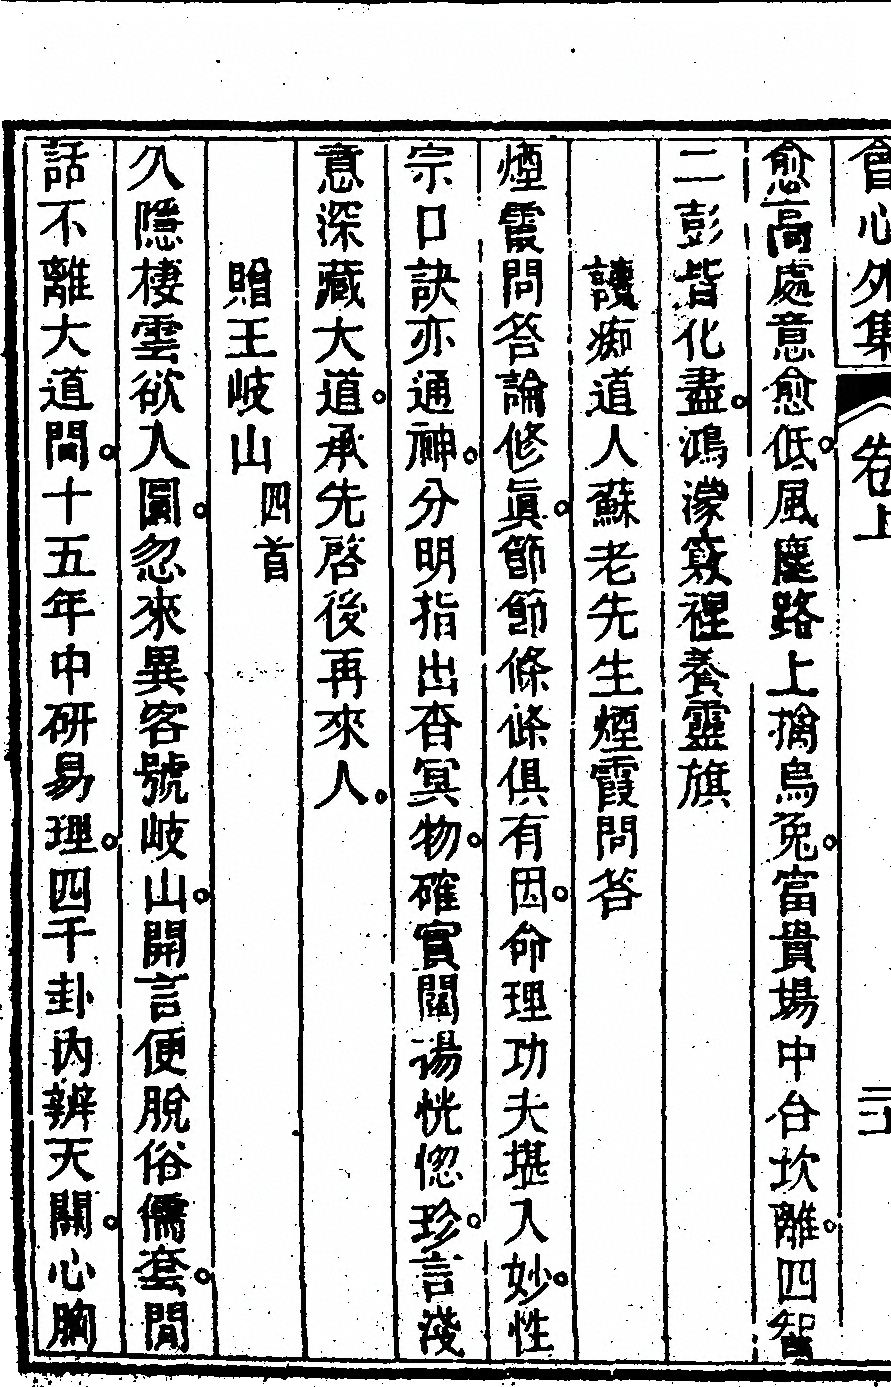 會心外集 卷上 二
愈高處意愈低。風塵路上擒烏兔。富貴場中合坎離。四智
二彭皆化盡。鴻濛竅裡養靈旗
讀痴道人蘇老先生煙霞問答
煙霞問答論修眞。節節條條俱有因。命理功夫堪入妙。性
宗口訣亦通神。分明指出杳冥物。確實闡揚恍惚珍。言淺
意深藏大道。承先啓後再來人。
贈王岐山 四首
久隱棲雲欲入圜。忽來異客號岐山。開言便脫俗儒套。閒
話不離大道間。十五年中研易理。四千卦內辨天關。心胸